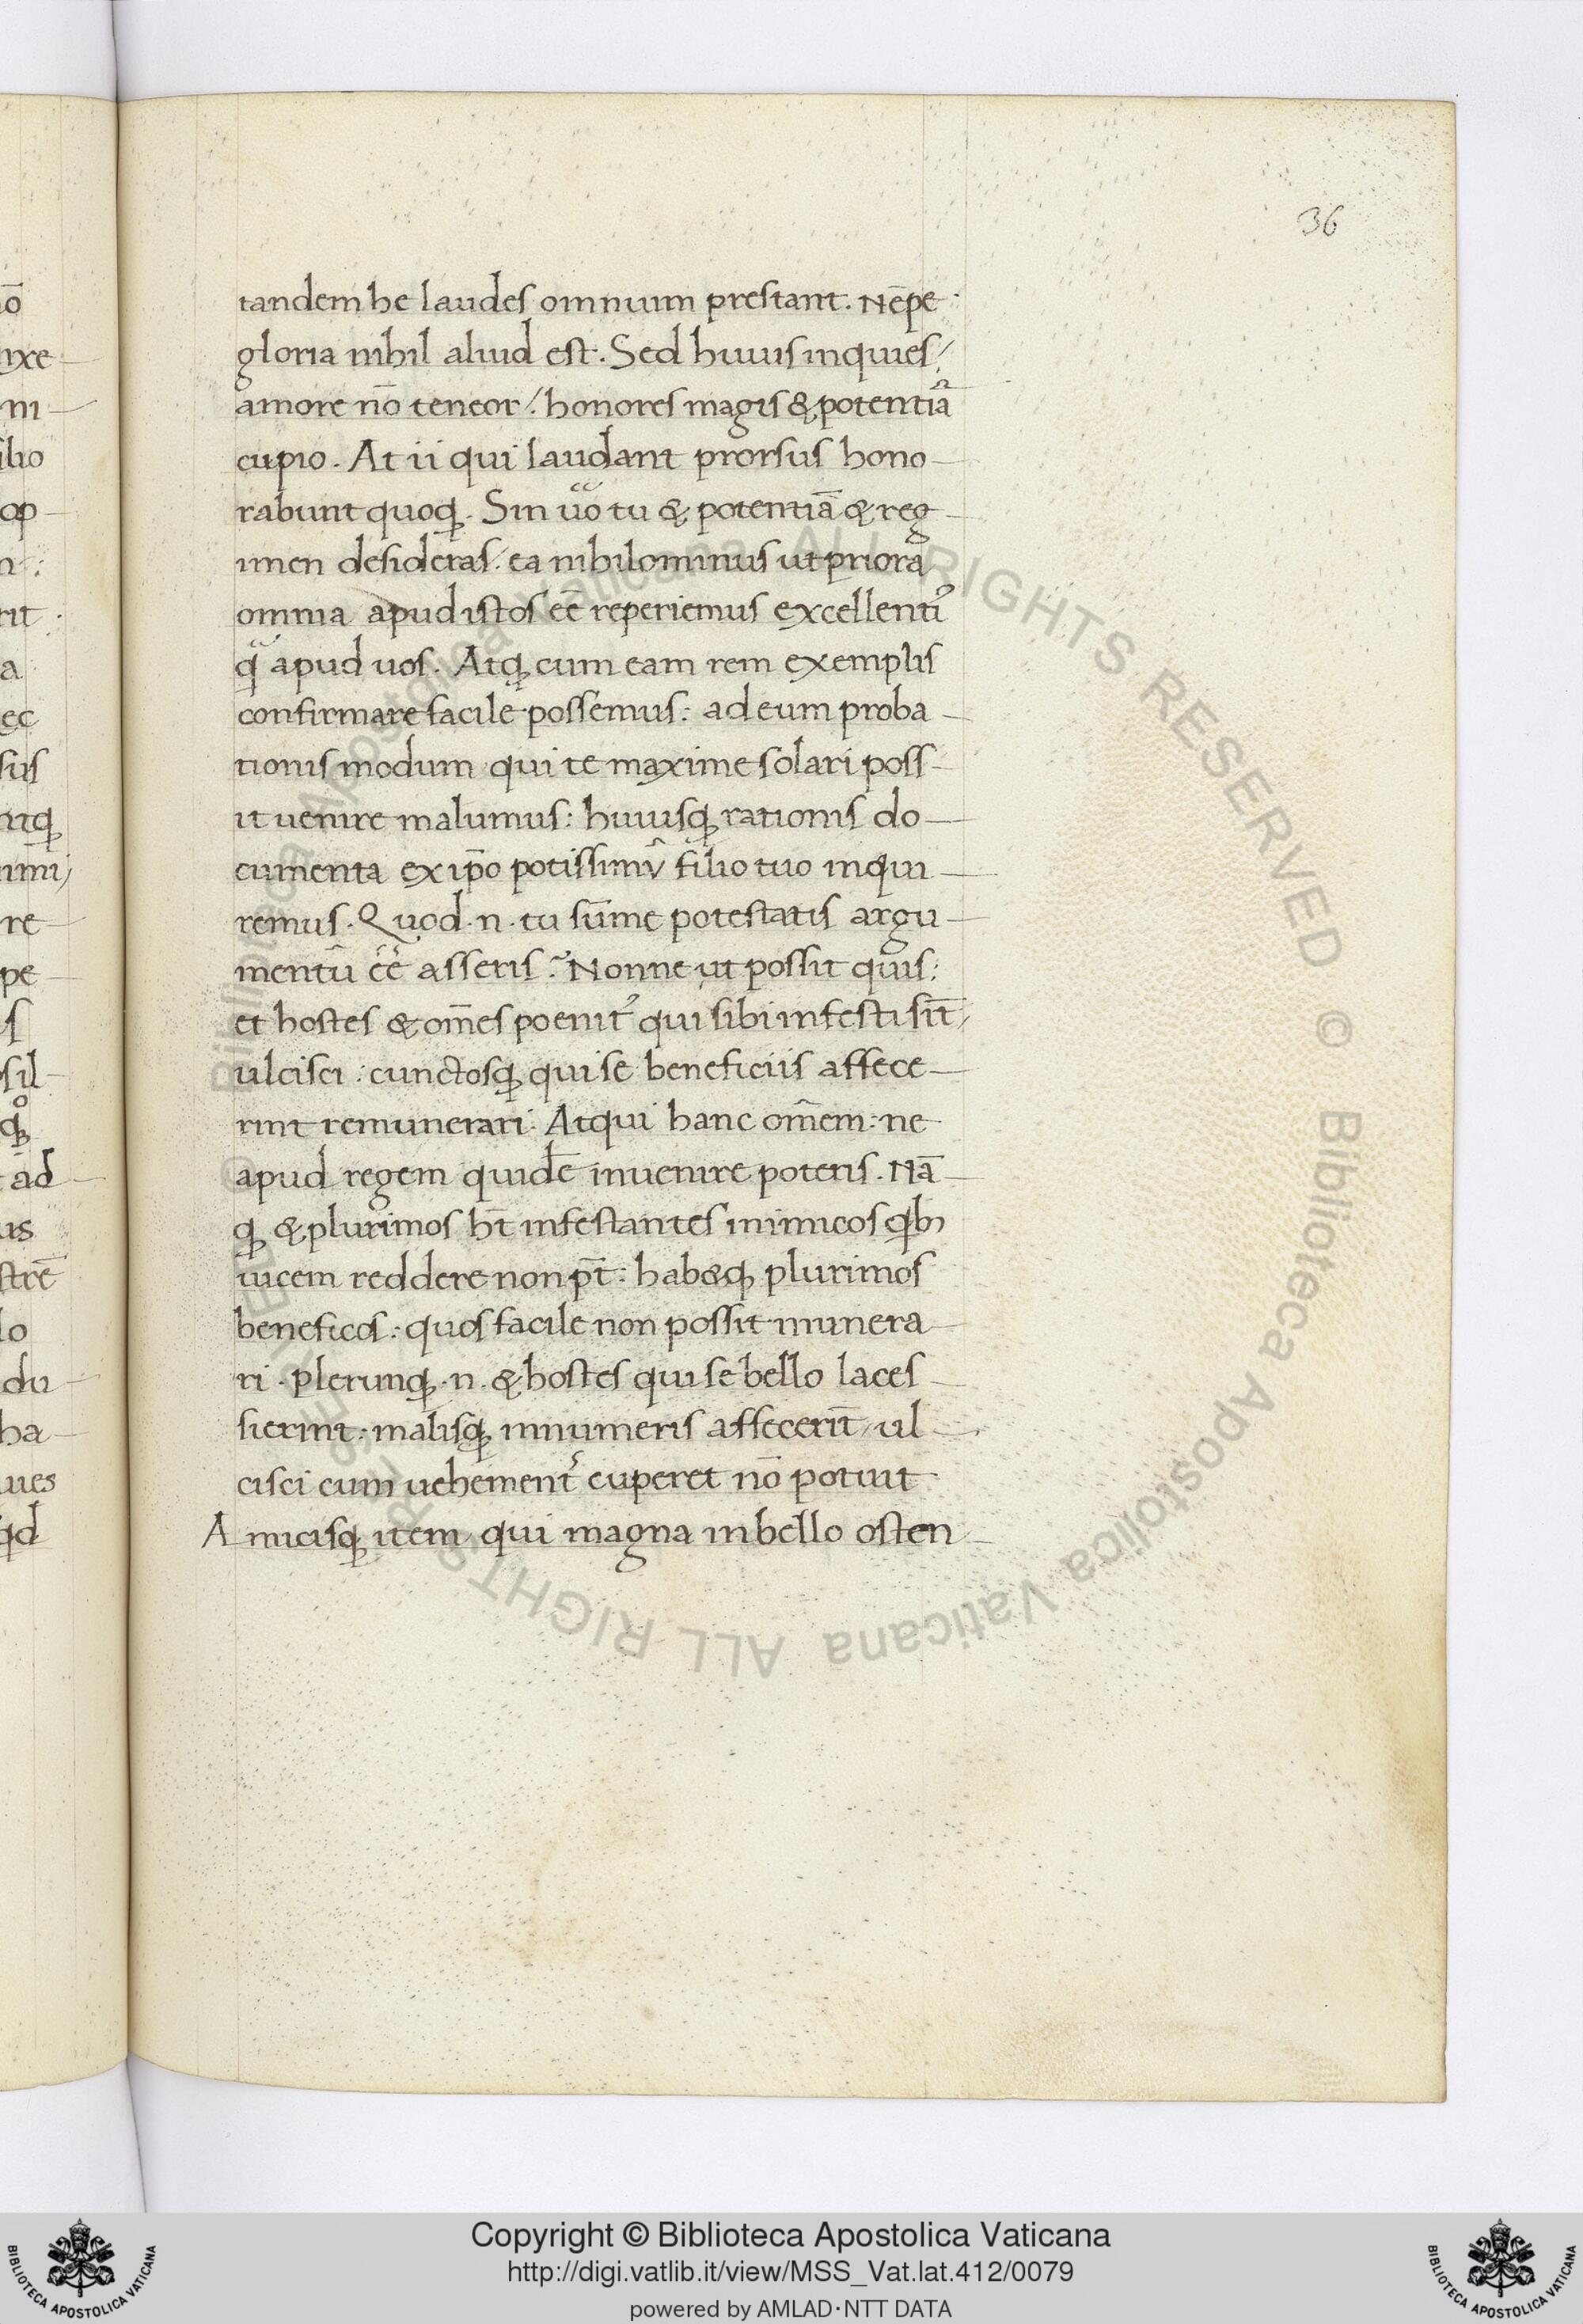 36
tandem he laudes omnium prestant. Nēpe
gloria nihil aliud est. Sed huius inquies/
amore nō teneor/. honores magis & potentiā
cupio. At ii qui laudant prorsus hono-
rabunt quoqꝫ. Sin uͦo tu & potentiā & reg-
imen desideras/. ea nihilominus ut priora
omnia apud istos eē reperiemus excellentiꝰ
q̃ apud uos. Atqꝫ cum eam rem exemplis
confirmare facile possemus: ad eum proba-
tionis modum qui te maxime solari poss-
it uenire malumus: huiusqꝫ rationis do-
cumenta ex ip̄o potissimū filio tuo inqui-
remus. Quod .n. tu sūme potestatis argu-
mentū eē asseris? Nonne ut possit quis:
et hostes & om̄es poenitꝰ qui sibi infesti sīt/
ulcisci: cunctosqꝫ qui se beneficiis affece-
rint remunerari. Atqui hanc om̄em: ne
apud regem quidē inuenire poteris. Nā-
qꝫ & plurimos hn̄t infestantes inimicos qbꝫ
uicem reddere non pt̄: hab&qꝫ plurimos
beneficos: quos facile non possit munera-
ri. plerunqꝫ .n. & hostes qui se bello laces-
sierint: malisqꝫ innumeris affecerīt/ ul-
cisci cum uehementꝰ cuperet nō potuit
Amicisqꝫ item qui magna in bello osten-
Biblioteca Apostolica Vaticana ALL RIGHTS RESERVED ©
Copyright © Biblioteca Apostolica Vaticana
http://digi.vatlib.it/view/MSS_Vat.lat.412/0079
powered by AMLAD·NTT DATA
BIBLIOTECA APOSTOLICA VATICANA
BIBLIOTECA APOSTOLICA VATICANA